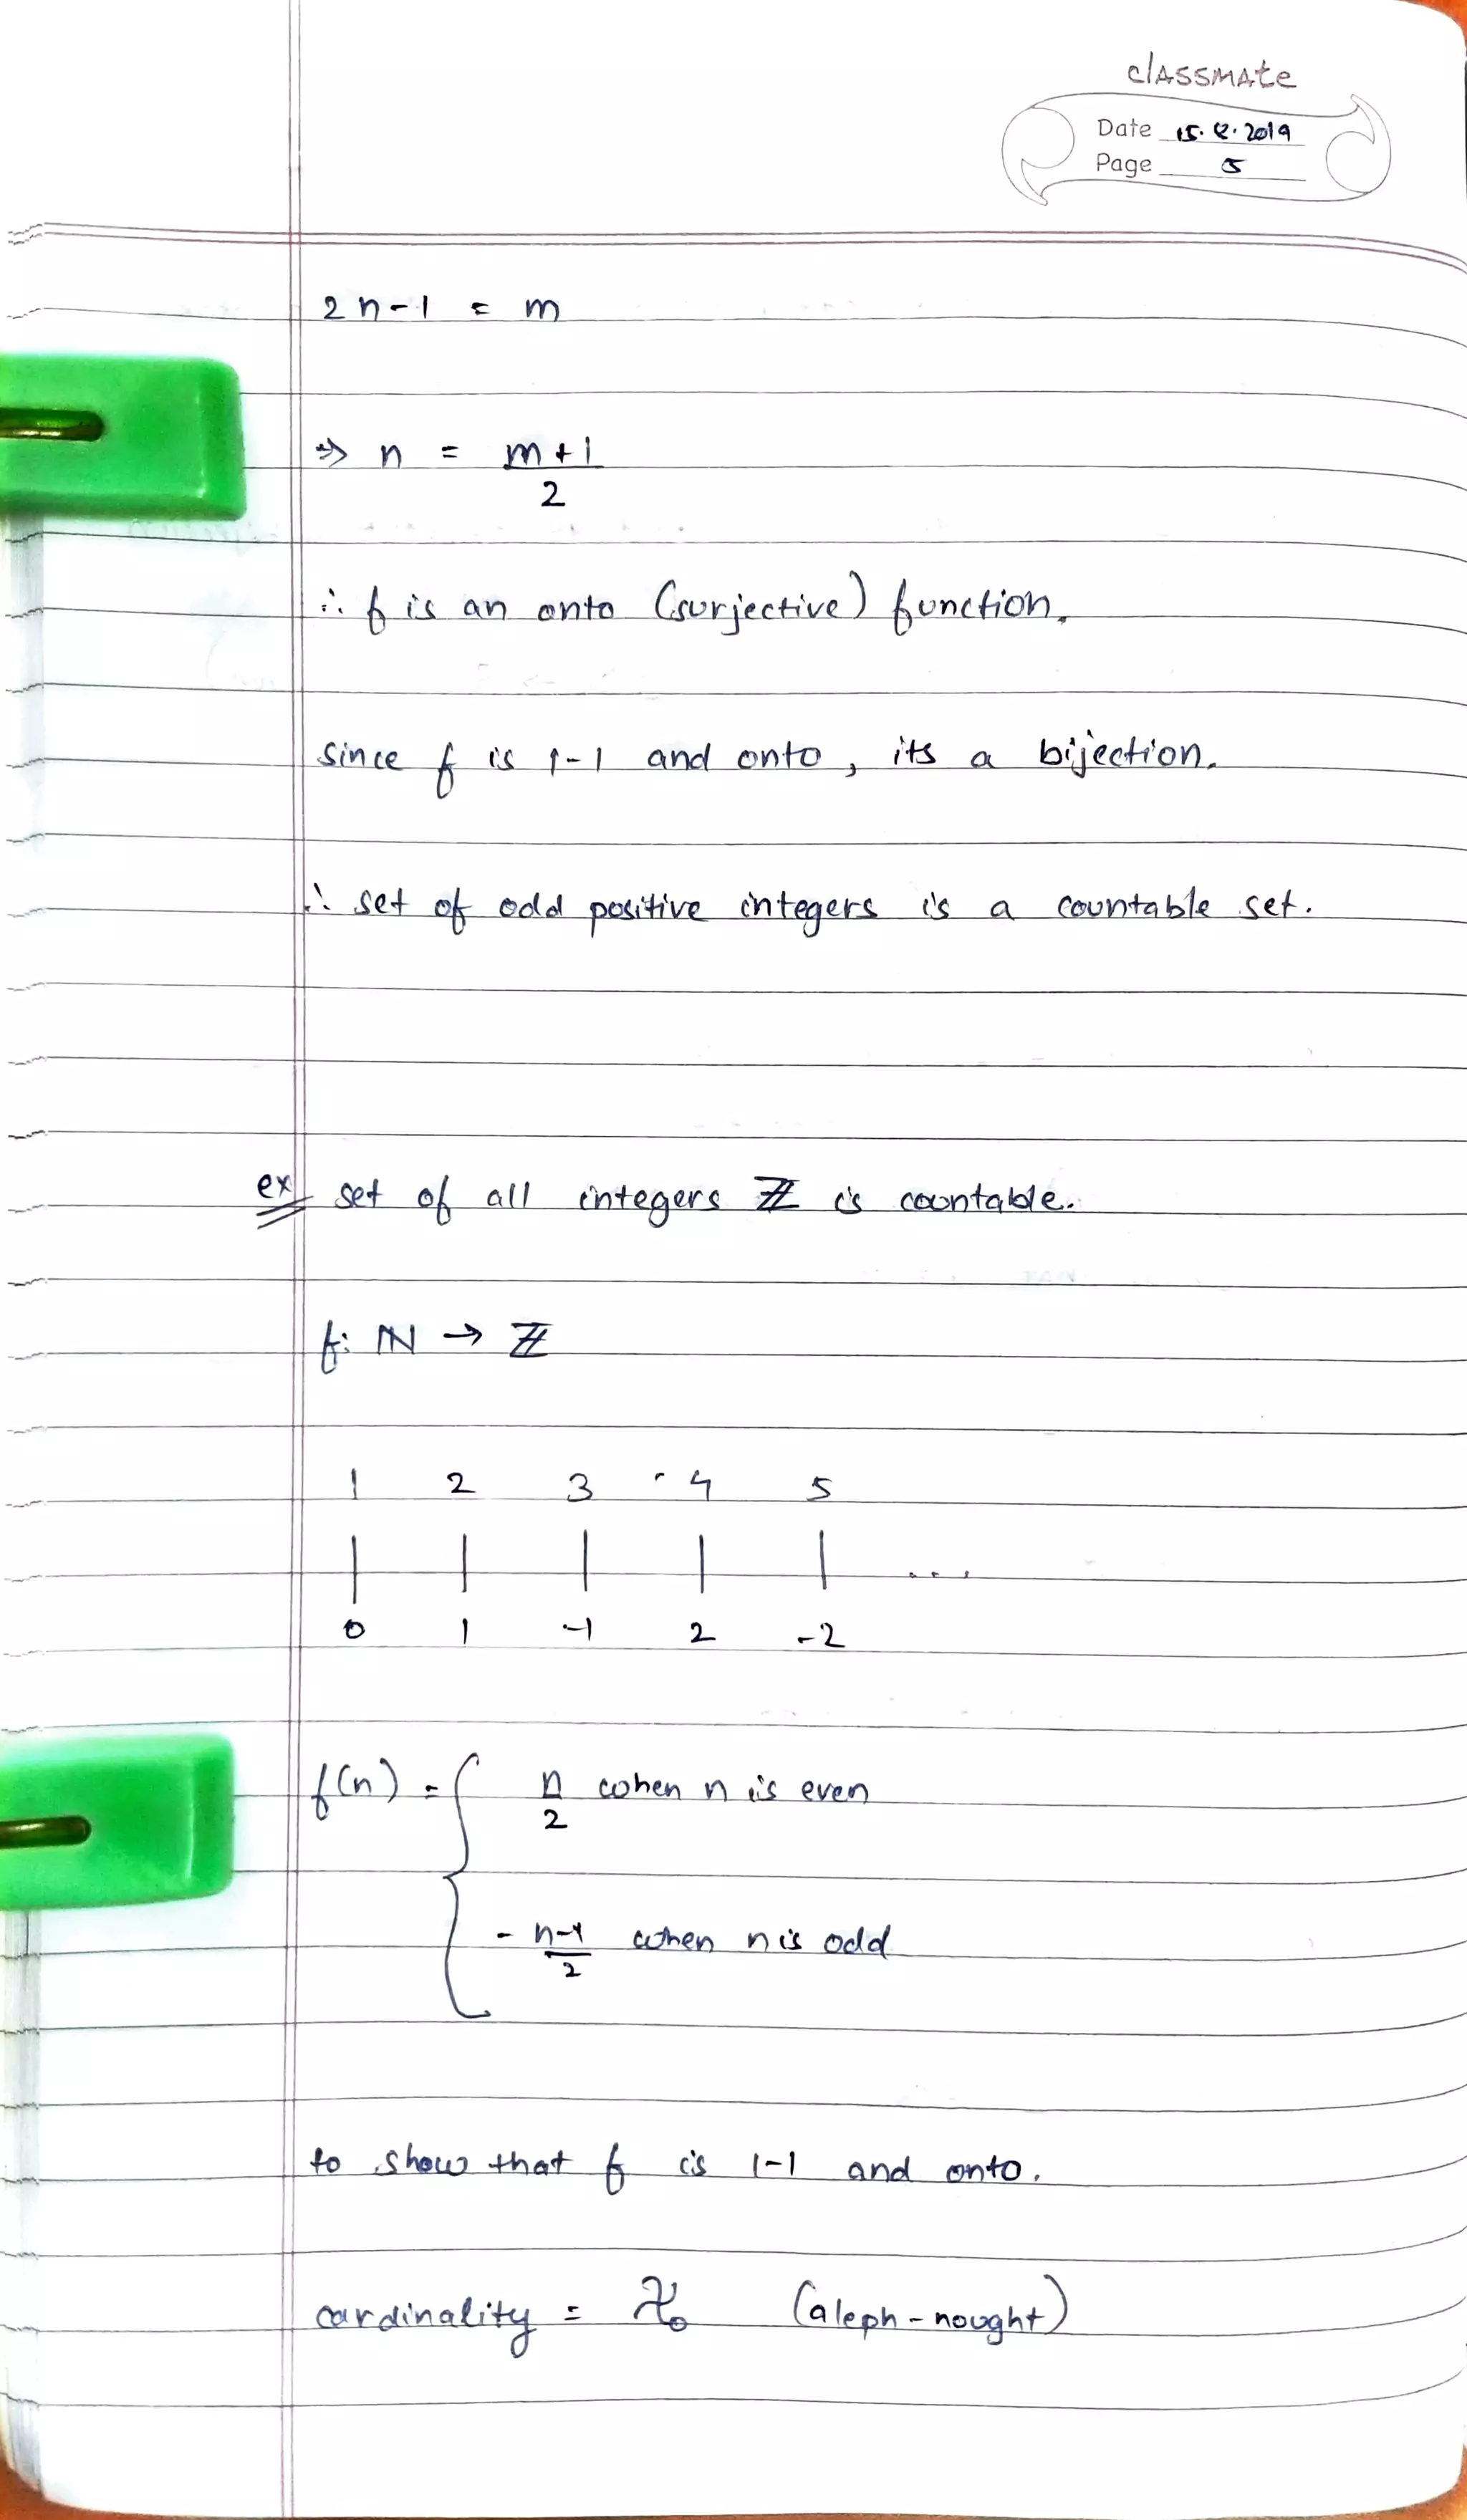 classmate
Date 15.8.2019
Page 5
2n-1 = m
⇒ n = m+1
2
∴ f is an onto (surjective) function.
since f is 1-1 and onto, its a bijection.
∴ set of odd positive integers is a countable set.
ex set of all integers ℤ is countable.
f: ℕ → ℤ
1 2 3 4 5
| | | | | ...
0 1 -1 2 -2
f(n) = { n when n is even
2
- n-1 when n is odd
2
to show that f is 1-1 and onto.
cardinality = ℵ₀ (aleph-nought)